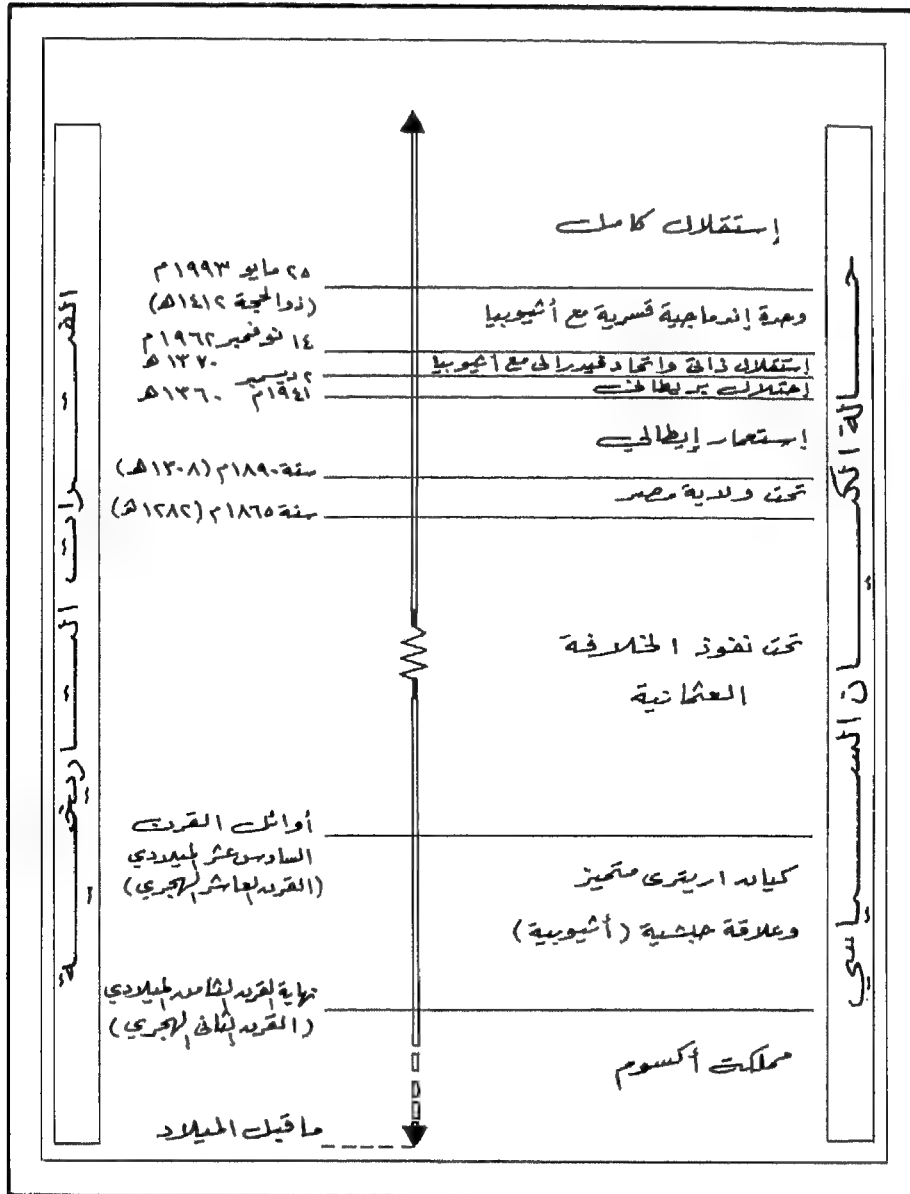 حالة الكيان السياسي
إستقلال كامل
وحدة إندماجية قسرية مع أثيوبيا
إستقلال ذاتي واتحاد فيدرالي مع أثيوبيا
إحتلال بريطاني
إستعمار إيطالي
تحت ولاية مصر
تحت نفوذ الخلافة
العثمانية
كيان اريترى متميز
وعلاقة حبشية (أثيوبية)
مملكة أكسوم
٢٥ مايو ١٩٩٣م
(ذو الحجة ١٤١٢هـ)
١٤ نوفمبر ١٩٦٢م
١٣٧٠هـ
٢ ديسمبر
١٩٤١م ١٣٦٠هـ
سنة ١٨٩٠م (١٣٠٨هـ)
سنة ١٨٦٥م (١٢٨٢هـ)
أوائل القرن
السادس عشر الميلادي
(القرن العاشر الهجري)
نهاية القرن الثامن الميلادي
(القرن الثاني الهجري)
ما قبل الميلاد
الفترات التاريخية